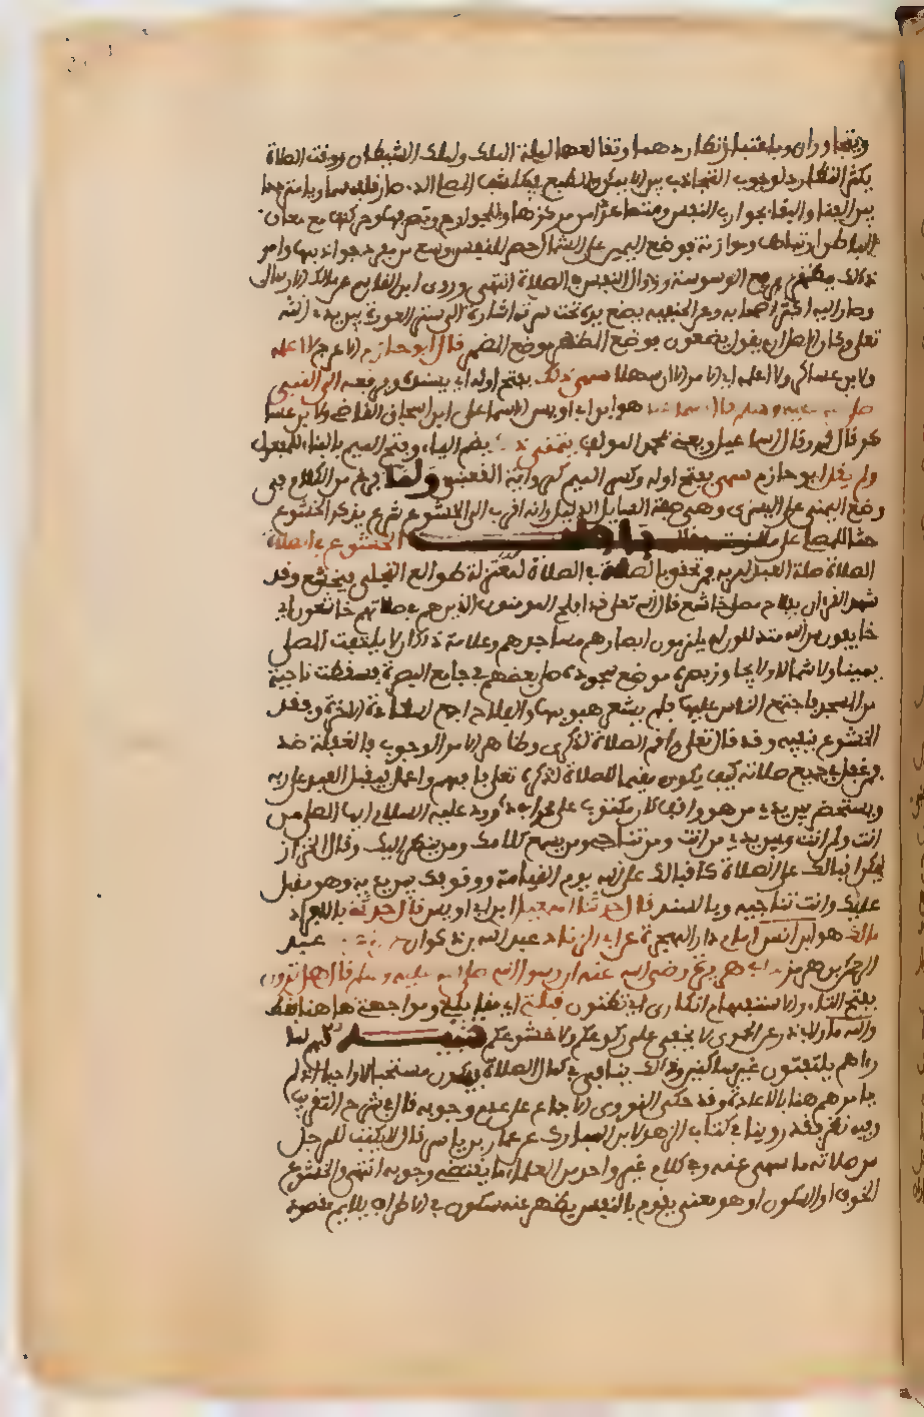 ويتجاوران وباعتبار تطاردهما وتغالبهما لمة الملك ولمة الشيطان ووقت الصلاة
يكثر التطارد لوجود التجاذب بين الايمان والطبع فيكاشف المصلي الذي صار قلبه سماويا مترددا
بين الفناء والبقاء بجواذب النفس متصاعدا من مركزها وللجوارح وتصرفها وحركتها مع معاني
الباطن ارتباط وموازنة فبوضع اليمنى على الشمال حصر للنفس ومنع من صعود جواذبها واثر
ذلك يظهر برفع الوسوسة وزوال النفس في الصلاة انتهى وروى ابن القاسم عن مالك الارسال
وصار اليه اكثر اصحابه وعن الحنفية يضع يديه تحت سرته اشارة الى ستر العورة بين يدي الله
تعالى وكان الاصل ان يقول يضعون فوضع المظهر موضع المضمر قال ابو حازم الاعرج لا اعلمه
ولابن عساكر ولا اعلمه اي الامر الا ان سهلا ينمي ذلك بفتح اوله اي يسنده ويرفعه الى النبي
صلى الله عليه وسلم قال اسماعيل هو ابن ابي اويس لا اسماعيل ابن اسحاق القاضي ولابن عسا
كر قال محمد قال اسماعيل ويعني محمد المؤلف ينمى ذلك بضم الياء وفتح الميم بالبناء للمفعول
ولم يقل ابو حازم ينمي بفتح اوله وكسر الميم كرواية القعنبي ولما فرغ من الكلام في
وضع اليمنى على اليسرى وهي صفة السايل الذليل وانه اقرب الى الخشوع شرع يذكر الخشوع
حثا للمصلي على ملازمته فقال باب الخشوع في الصلاة
الصلاة صلة العبد لربه فمن تحقق بالصلاة في الصلاة لمعت له طوالع التجلي فيخشع وقد
شهد القرءان بفلاح مصل خاشع قال الله تعالى قد افلح المومنون الذين هم في صلاتهم خاشعون اي
خايفون من الله متذللون له يلزمون ابصارهم مساجدهم وعلامة ذلك ان لا يلتفت المصلي
يمينا ولا شمالا ولا يجاوز بصره موضع سجوده صلى بعضهم في جامع البصرة فسقطت ناحية
من المسجد فاجتمع الناس عليها فلم يشعر هو بها والفلاح اجمع اسم لسعادة الاخرة وفقد
الخشوع ينفيه وقد قال تعالى واقم الصلاة لذكري وظاهر الامر الوجوب فالغفلة ضد
فمن غفل في جميع صلاته كيف يكون مقيما للصلاة لذكره تعالى فافهم واعمل فليقبل العبد على ربه
ويستحضر بين يدي من هو واقف كان مكتوب على محراب داوود عليه السلام ايها المصلي من
انت ولمن انت وبين يدي من انت ومن تناجي ومن يسمع كلامك ومن ينظر اليك وقال الخراز
ليكن اقبالك على الصلاة كاقبالك على الله يوم القيامة ووقوفك بين يديه وهو مقبل
عليك وانت تناجيه وبالسند قال حدثنا اسماعيل ابن ابي اويس قال حدثني بالافراد
مالك هو ابن انس امام دار الهجرة عن ابي الزناد عبد الله بن ذكوان عن الاعرج عبد
الرحمن بن هرمز عن ابي هريرة رضي الله عنه ان رسول الله صلى الله عليه وسلم قال هل ترون
بفتح التاء والاستفهام انكاري اي تظنون قبلتي اي مقابلتي ومواجهتي هاهنا فقط
والله ما ولابي ذر عن الحموي لا يخفى علي ركوعكم ولا خشوعكم تنبيه لهم لما
رءاهم يلتفتون غير ساكنين وذلك ينافي كمال الصلاة فيكون مستحبا لا واجبا اذ لم
يامرهم هنا بالاعادة وقد حكى النووي الاجماع على عدم وجوبه قال في شرح التقريب
وفيه نظر فقد روينا في كتاب الزهد لابن المبارك عن عمار بن ياسر قال لا يكتب للرجل
من صلاته ما سهى عنه وفي كلام غير واحد من العلماء ما يقتضي وجوبه انتهى والخشوع
الخوف او السكون او هو معنى يقوم بالنفس يظهر عنه سكون في الاطراف يلايم مقصود